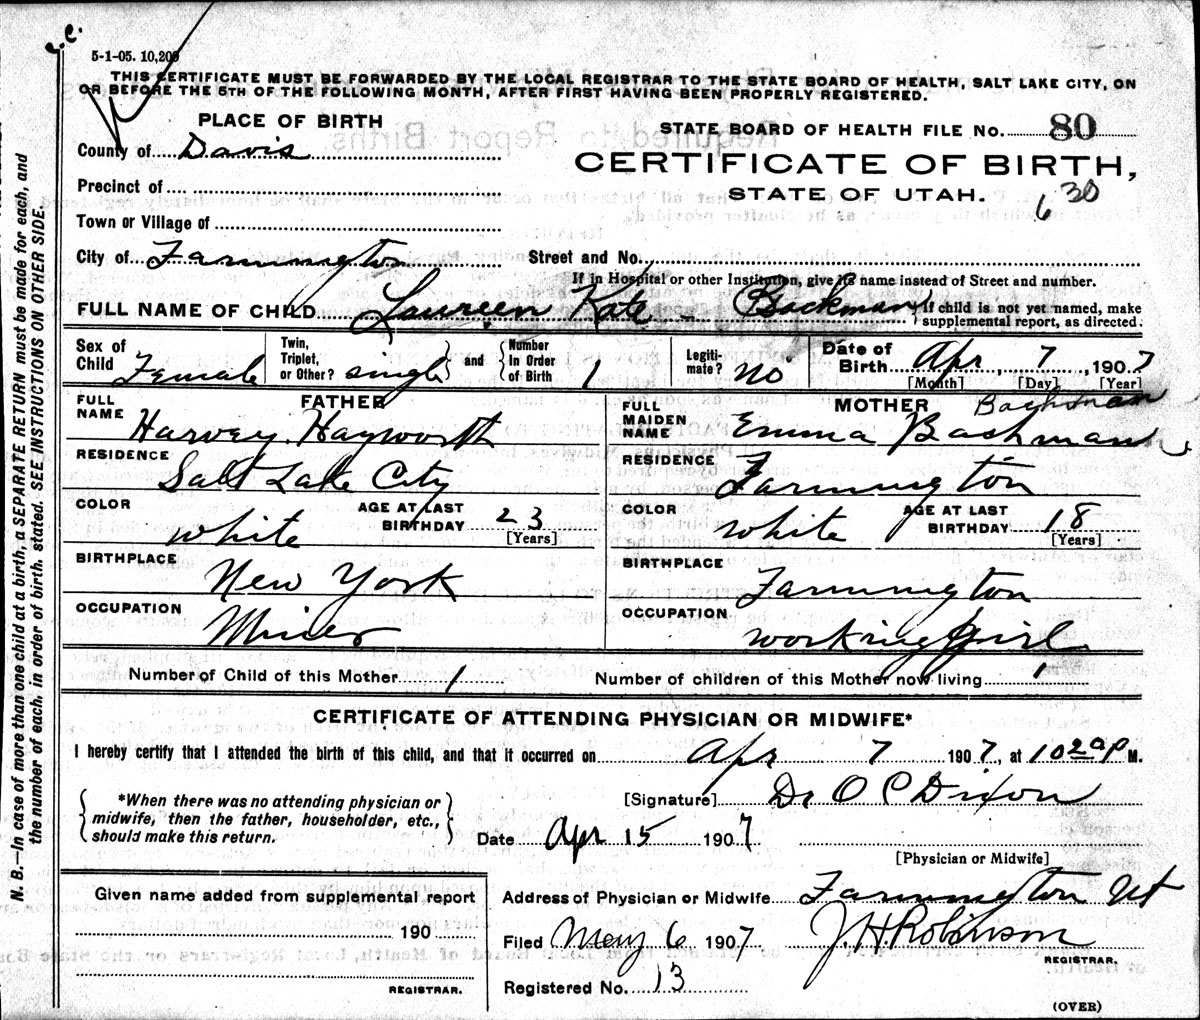 5-1-05. 10,200
THIS CERTIFICATE MUST BE FORWARDED BY THE LOCAL REGISTRAR TO THE STATE BOARD OF HEALTH, SALT LAKE CITY, ON
OR BEFORE THE 5TH OF THE FOLLOWING MONTH, AFTER FIRST HAVING BEEN PROPERLY REGISTERED.
PLACE OF BIRTH
STATE BOARD OF HEALTH FILE No. 80
County of Davis
CERTIFICATE OF BIRTH,
Precinct of
STATE OF UTAH.
630
Town or Village of
City of Farmington
Street and No.
If in Hospital or other Institution, give its name instead of Street and number.
FULL NAME OF CHILD Laureen Kate - Backman
If child is not yet named, make supplemental report, as directed.
Sex of Child Female
Twin, Triplet, or Other? single and Number in Order of Birth 1
Legitimate? No
Date of Birth Apr 7, 1907
[Month] [Day] [Year]
FATHER
FULL NAME Harvey Hayworth
MOTHER Bachman
FULL MAIDEN NAME Emma Bachman
RESIDENCE Salt Lake City
RESIDENCE Farmington
COLOR White AGE AT LAST BIRTHDAY 23 [Years]
COLOR White AGE AT LAST BIRTHDAY 18 [Years]
BIRTHPLACE New York
BIRTHPLACE Farmington
OCCUPATION Miner
OCCUPATION working girl
Number of Child of this Mother 1 Number of children of this Mother now living 1
CERTIFICATE OF ATTENDING PHYSICIAN OR MIDWIFE*
I hereby certify that I attended the birth of this child, and that it occurred on Apr 7 1907, at 10 20 P M.
*When there was no attending physician or midwife, then the father, householder, etc., should make this return.
[Signature] Dr O C Dixon
Date Apr 15 1907
[Physician or Midwife]
Given name added from supplemental report
190
REGISTRAR.
Address of Physician or Midwife Farmington Ut
Filed May 6 1907 J. H. Robinson
REGISTRAR.
Registered No. 13
(OVER)
N. B.—In case of more than one child at a birth, a SEPARATE RETURN must be made for each, and
the number of each, in order of birth, stated. SEE INSTRUCTIONS ON OTHER SIDE.